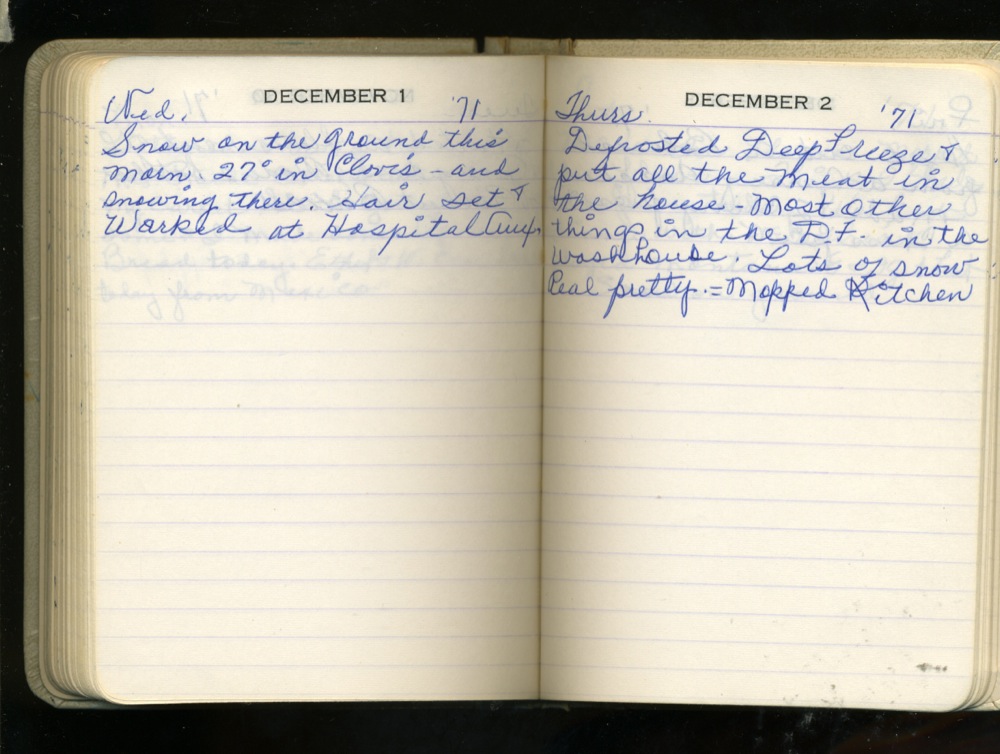 DECEMBER 1
Wed. '71
Snow on the ground this
morn. 27° in Clovis - and
snowing there. Hair set &
Worked at Hospital Aux.
DECEMBER 2
Thurs. '71
Defrosted Deep Freeze &
put all the meat in
the house - Most other
things in the D.F. in the
washhouse. Lots of snow
Real pretty. = Mopped Kitchen